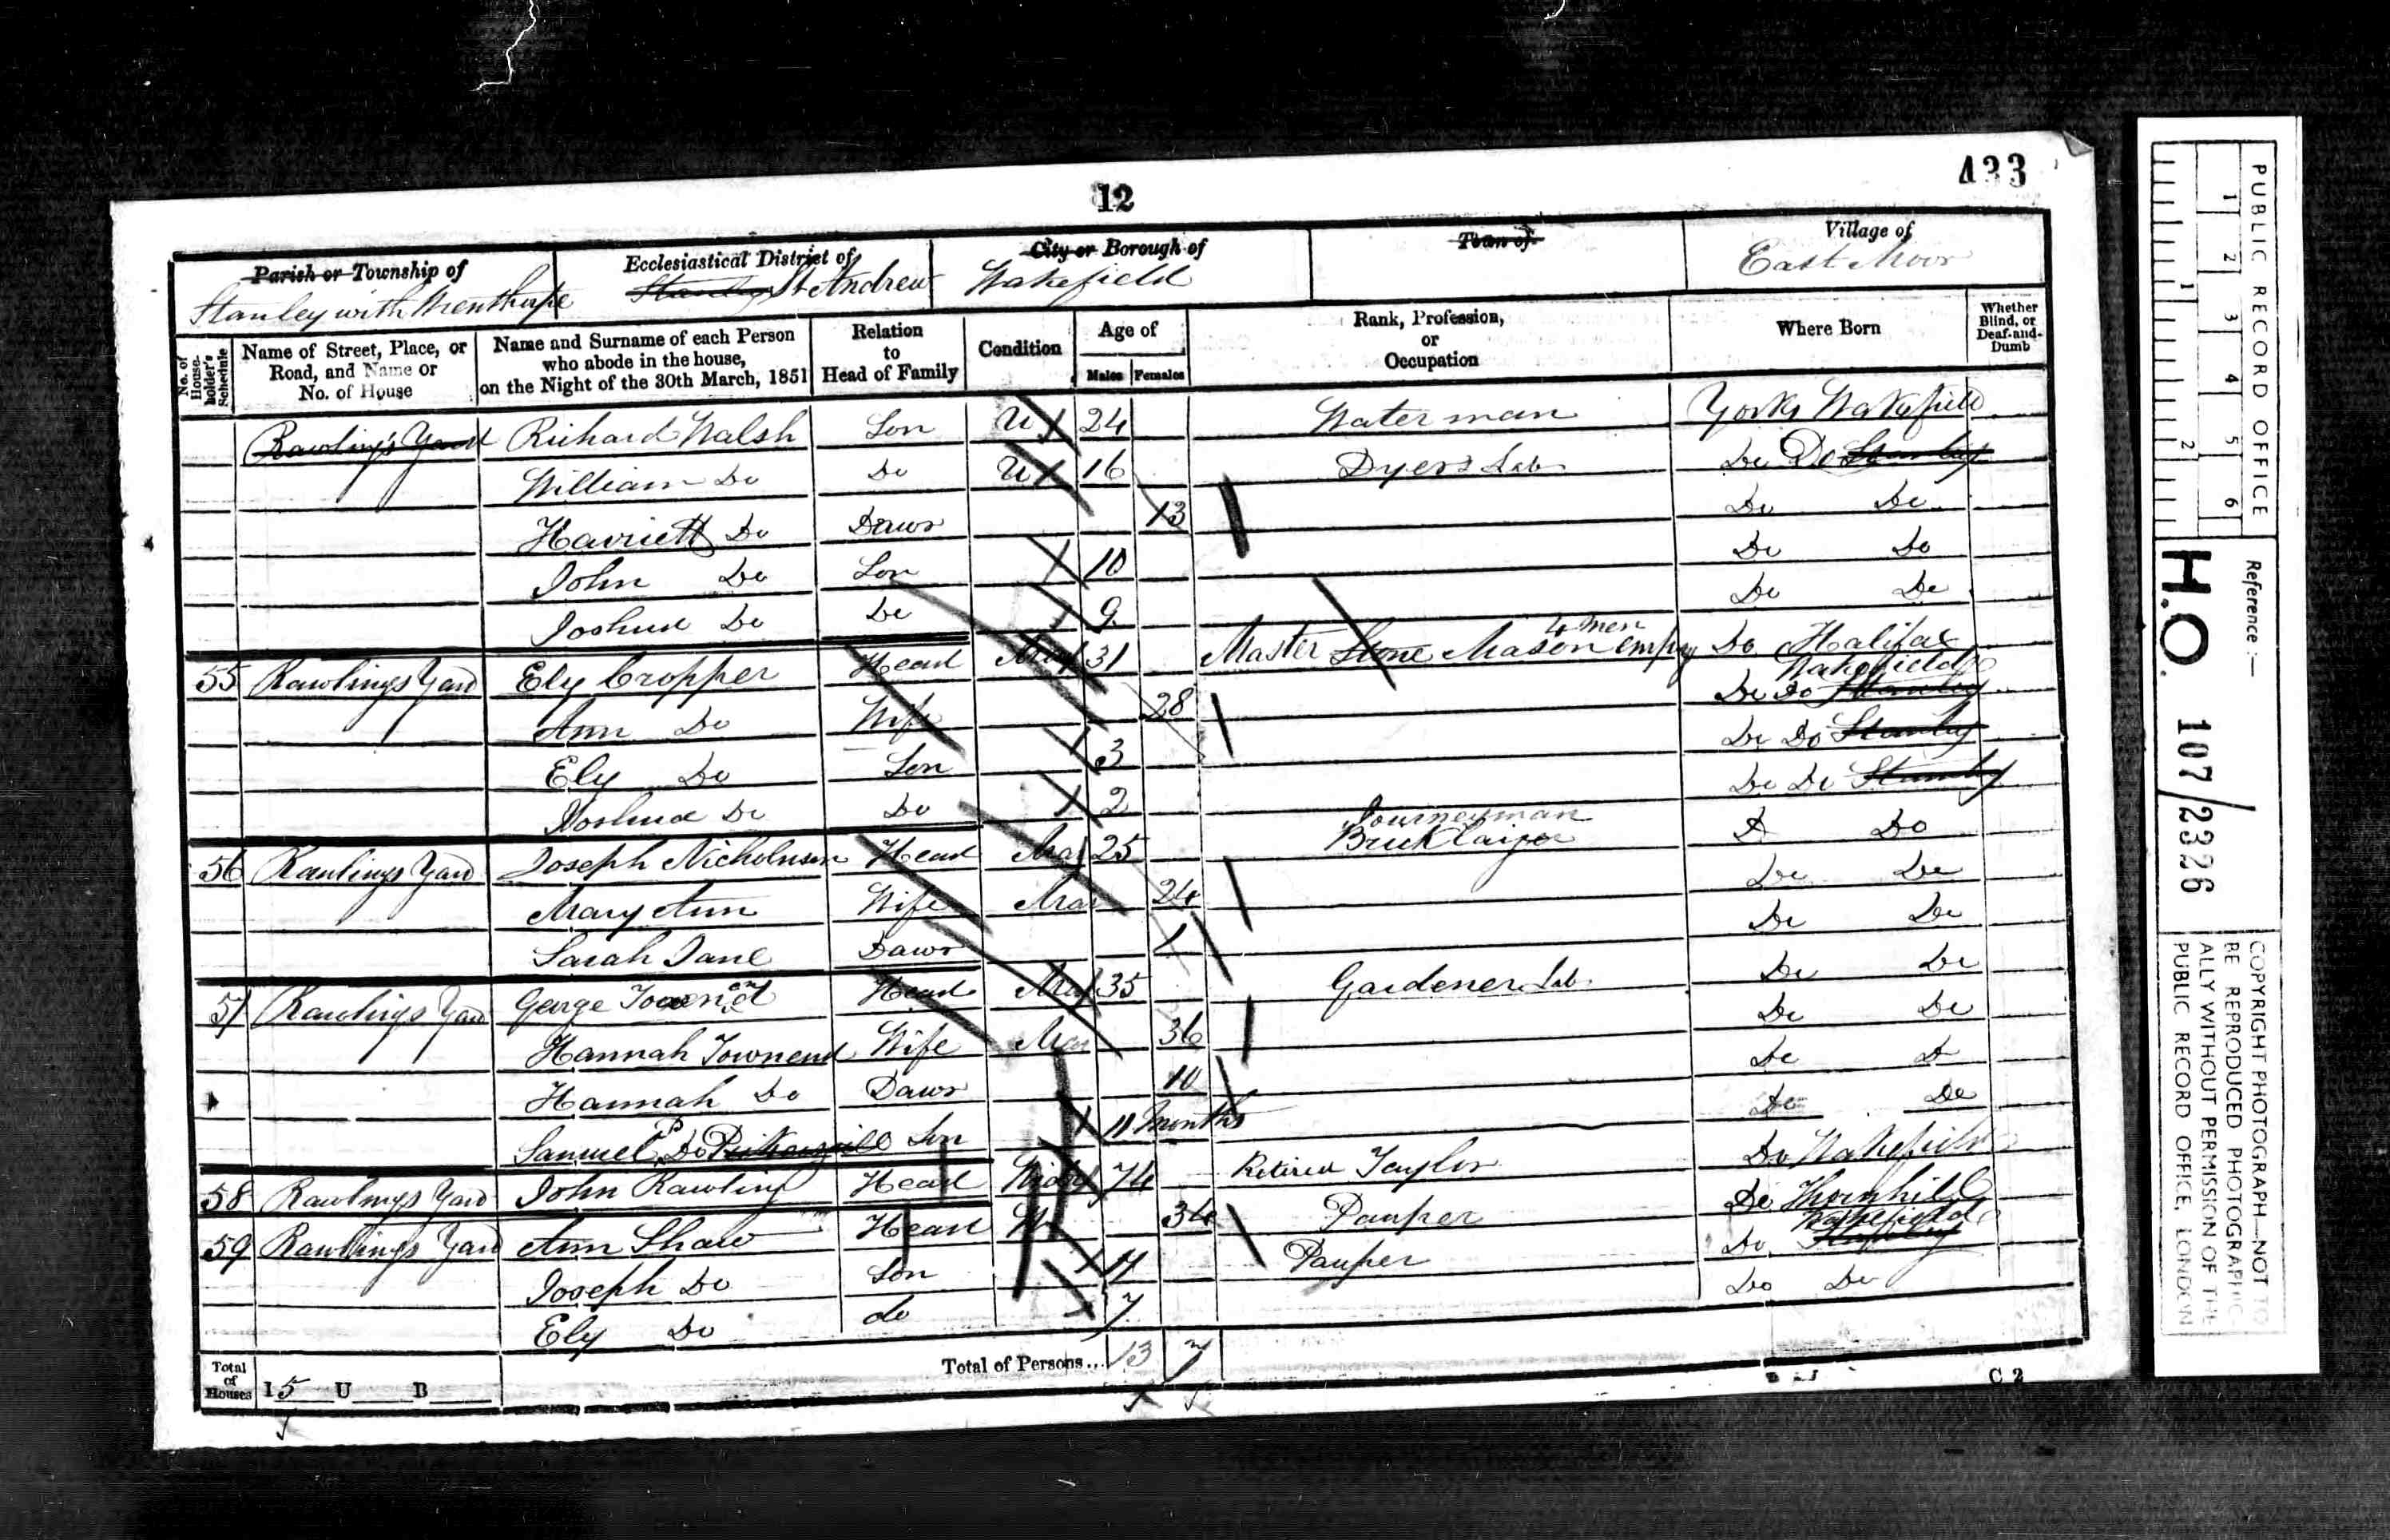 12
433
Parish or Township of
Stanley with Wrenthorpe
Ecclesiastical District of
Stanley St Andrew
City or Borough of
Wakefield
Town of
Village of
East Moor
No. of House-holder's Schedule
Name of Street, Place, or Road, and Name or No. of House
Name and Surname of each Person who abode in the house, on the Night of the 30th March, 1851
Relation to Head of Family
Condition
Age of
Males Females
Rank, Profession, or Occupation
Where Born
Whether Blind, or Deaf-and-Dumb
Rawling's Yard Richard Walsh Son U 24 Waterman Yorks Wakefield
William Do Do U 16 Dyers Lab Do Do Stanley
Harriett Do Dawr 13 Do Do
John Do Son 10 Do Do
Joshua Do Do 9 Do Do
55 Rawlings Yard Ely Cropper Head Mar 31 Master Stone Mason 4 men empg Do Halifax
Ann Do Wife 28 Do Do Stanley Wakefield
Ely Do Son 3 Do Do Stanley
Joshua Do Do 2 Do Do Stanley
56 Rawlings Yard Joseph Nicholson Head Mar 25 Journeyman Bricklayer D Do
Mary Ann Wife Mar 24 Do Do
Sarah Jane Dawr 1 Do Do
57 Rawlings Yard George Townend Head Mar 35 Gardener Lab Do Do
Hannah Townend Wife Mar 36 Do Do
Hannah Do Dawr 10 Do D
Samuel P Do Son 11 Months Do Do
58 Rawlings Yard John Rawling Head Widr 74 Retired Taylor Do Wakefield
59 Rawlings Yard Ann Shaw Head W 34 Pauper Do Thornhill
Joseph Do Son 11 Pauper Do Stanley Wakefield
Ely Do do 7 Do Do
Total of Houses I 5 U B
Total of Persons... 13 7
C 2
PUBLIC RECORD OFFICE
1 2 3 4 5 6
1 2
Reference :-
H.O. 107/2326
COPYRIGHT PHOTOGRAPH—NOT TO
BE REPRODUCED PHOTOGRAPHIC-
ALLY WITHOUT PERMISSION OF THE
PUBLIC RECORD OFFICE, LONDON